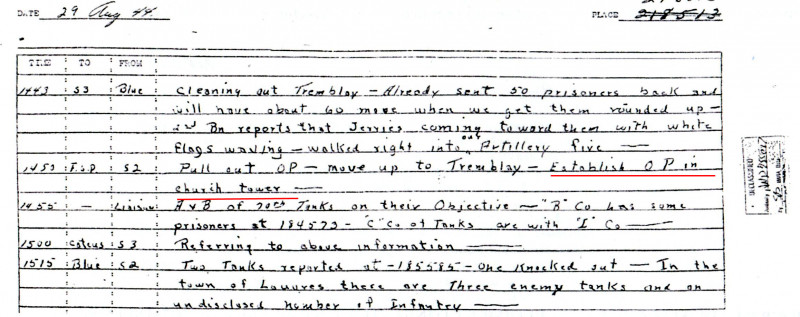 DATE 29 Aug 44. PLACE 218513
TIME TO FROM
1443 S3 Blue Cleaning out Tremblay — Already sent 50 prisoners back and
will have about 60 more when we get them rounded up —
Bn reports that Jerries coming toward them with white
flags waving — walked right into our Artillery fire —
S2 Pull out OP — move up to Tremblay — Establish O.P in
church tower —
1455 — Liaison A & B of 70th Tanks on their Objective — "B" Co has some
prisoners at 184573 — "C" Co of Tanks are with "I" Co —
1500 S3 Referring to above information —
1515 Blue S2 Two Tanks reported at — 185585 — One Knocked out — In the
town of Louvres there are Three enemy tanks and an
undisclosed number of Infantry —
DECLASSIFIED